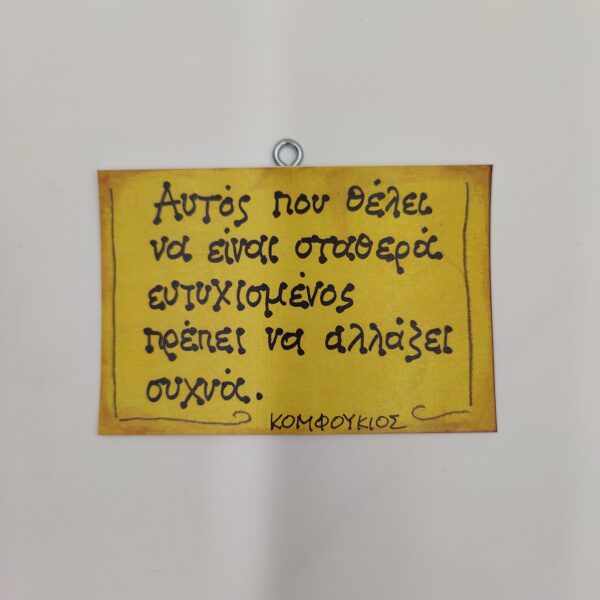 Αυτός που θέλει
να είναι σταθερά
ευτυχισμένος
πρέπει να αλλάζει
συχνά.
ΚΟΜΦΟΥΚΙΟΣ